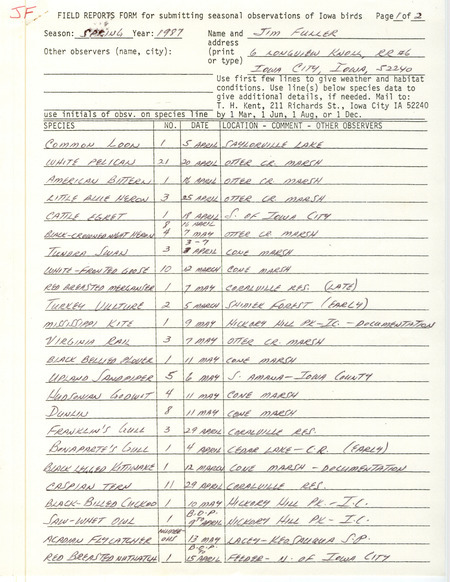 JF
FIELD REPORTS FORM for submitting seasonal observations of Iowa birds Page 1 of 2
Season: SPRING Year: 1987 Name and JIM FULLER
address
Other observers (name, city): (print 6 LONGVIEW KNOLL, RR#6
or type) IOWA CITY, IOWA, 52240
Use first few lines to give weather and habitat
conditions. Use line(s) below species data to
give additional details, if needed. Mail to:
T. H. Kent, 211 Richards St., Iowa City IA 52240
use initials of obsv. on species line by 1 Mar, 1 Jun, 1 Aug, or 1 Dec.
SPECIES NO. DATE LOCATION - COMMENT - OTHER OBSERVERS
COMMON LOON 1 5 APRIL SAYLORVILLE LAKE
WHITE PELICAN 21 20 APRIL OTTER CR. MARSH
AMERICAN BITTERN 1 16 APRIL OTTER CR. MARSH
LITTLE BLUE HERON 3 25 APRIL OTTER CR. MARSH
CATTLE EGRET 1 18 APRIL S. OF IOWA CITY
8 16 APRIL
BLACK-CROWNED NIGHT HERON 4 7 MAY OTTER CR. MARSH
3-7
TUNDRA SWAN 3 APRIL CONE MARSH
WHITE-FRONTED GOOSE 10 12 MARCH CONE MARSH
RED BREASTED MERGANSER 1 7 MAY CORALVILLE RES. (LATE)
TURKEY VULTURE 2 5 MARCH SHIMEK FOREST (EARLY)
MISSISSIPPI KITE 1 9 MAY HICKORY HILL PK-IC. - DOCUMENTATION
VIRGINIA RAIL 3 7 MAY OTTER CR. MARSH
BLACK BELLIED PLOVER 1 11 MAY CONE MARSH
UPLAND SANDPIPER 5 6 MAY S. AMANA - IOWA COUNTY
HUDSONIAN GODWIT 4 11 MAY CONE MARSH
DUNLIN 8 11 MAY CONE MARSH
FRANKLIN'S GULL 3 29 APRIL CORALVILLE RES.
BONAPARTE'S GULL 1 4 APRIL CEDAR LAKE - C.R. (EARLY)
BLACK LEGGED KITTIWAKE 1 12 MARCH CONE MARSH - DOCUMENTATION
CASPIAN TERN 11 29 APRIL CORALVILLE RES.
BLACK-BILLED CUCKOO 1 10 MAY HICKORY HILL PK - I.C.
B.O.P.
SAW-WHET OWL 1 9TH APRIL HICKORY HILL PK - I.C.
ACADIAN FLYCATCHER NUMEROUS 13 MAY LACEY-KEOSAUQUA S.P.
B.O.P.
RED BREASTED NUTHATCH 1 15 APRIL FEEDER - N. OF IOWA CITY